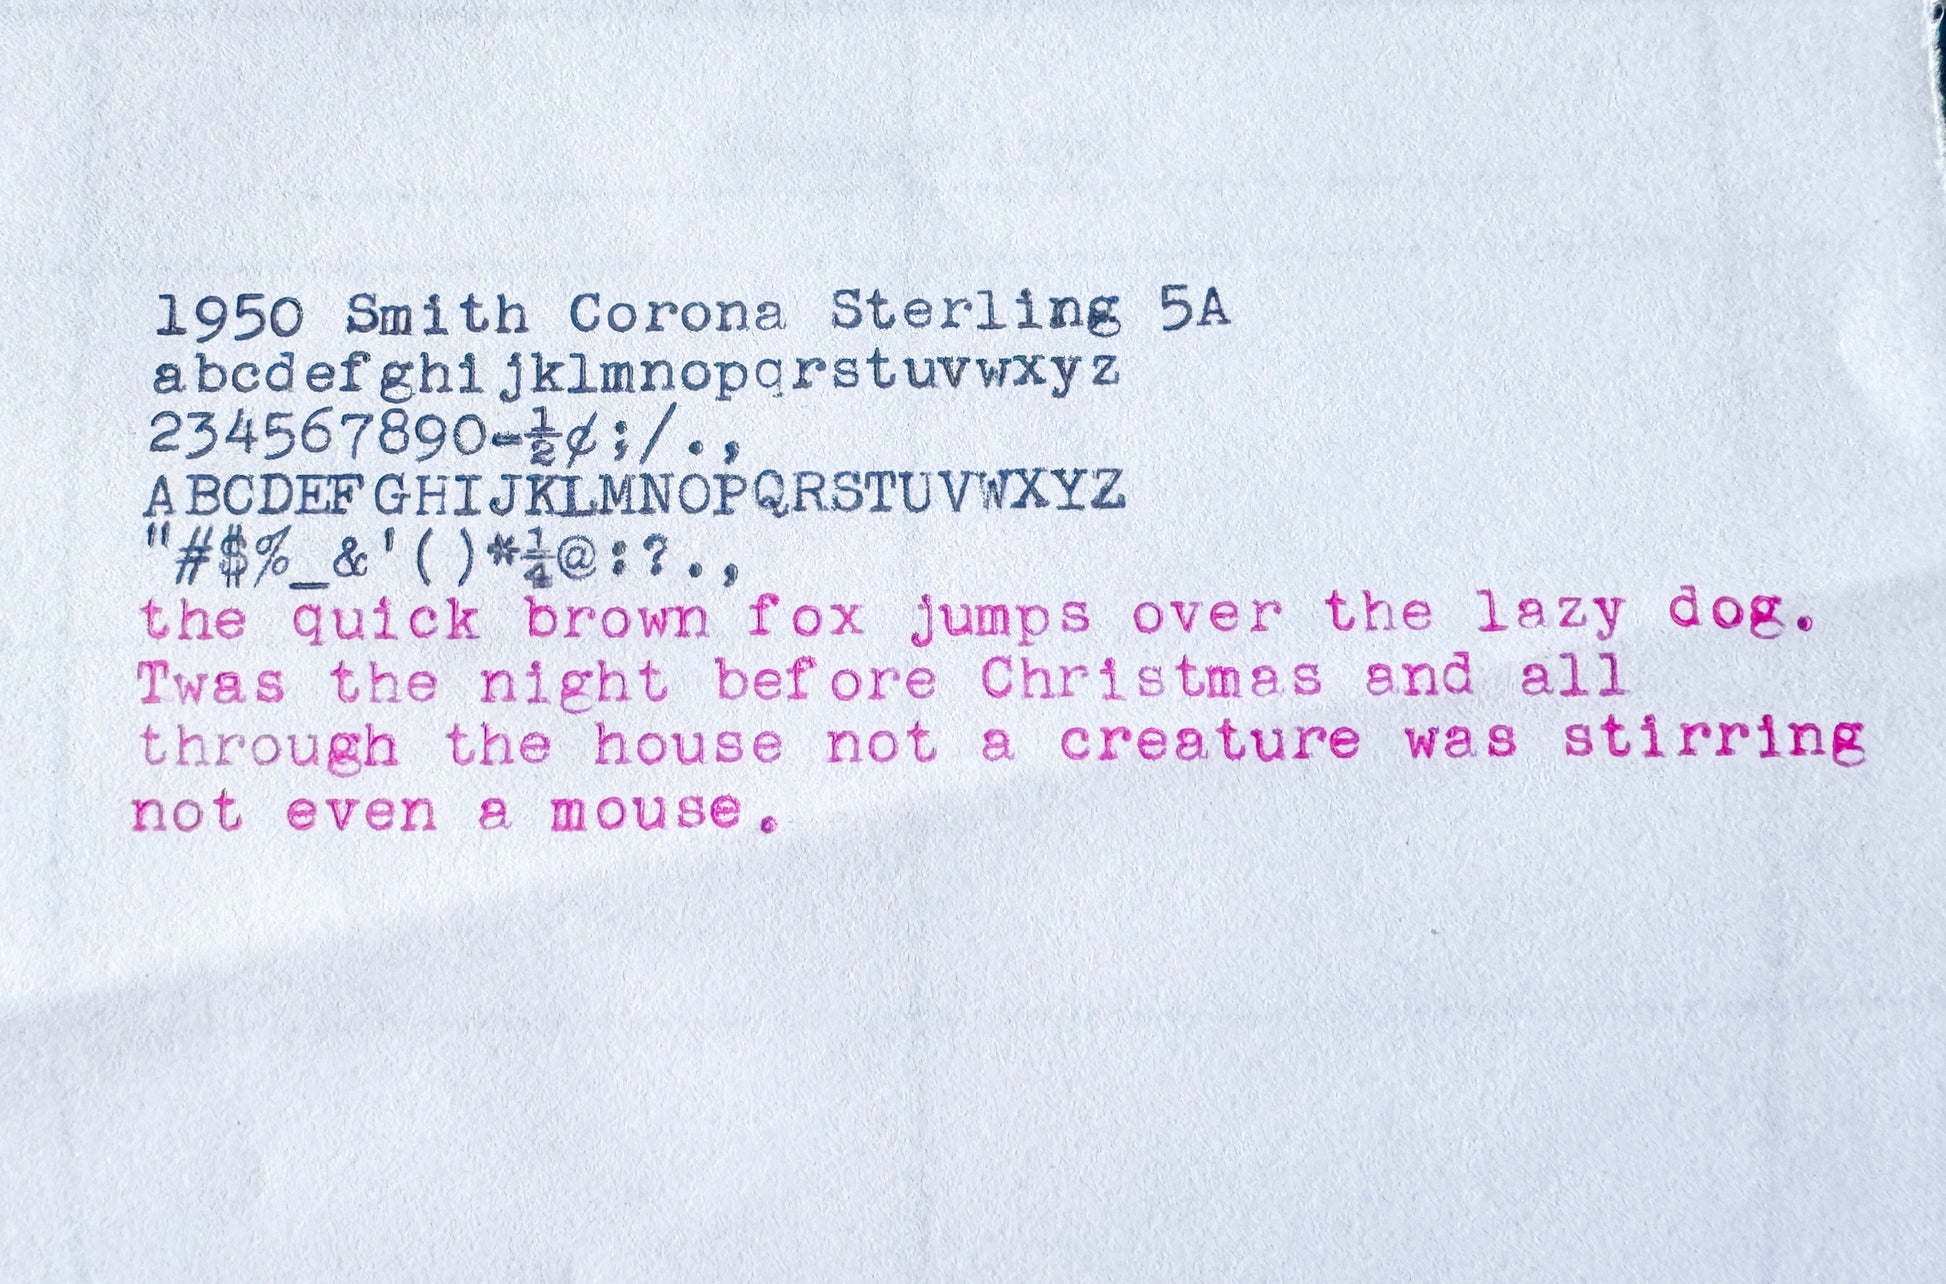 1950 Smith Corona Sterling 5A
abcdefghijklmnopqrstuvwxyz
234567890-½¢;/.,
ABCDEFGHIJKLMNOPQRSTUVWXYZ
"#$%_&'()*¼@:?.,
the quick brown fox jumps over the lazy dog.
Twas the night before Christmas and all
through the house not a creature was stirring
not even a mouse.